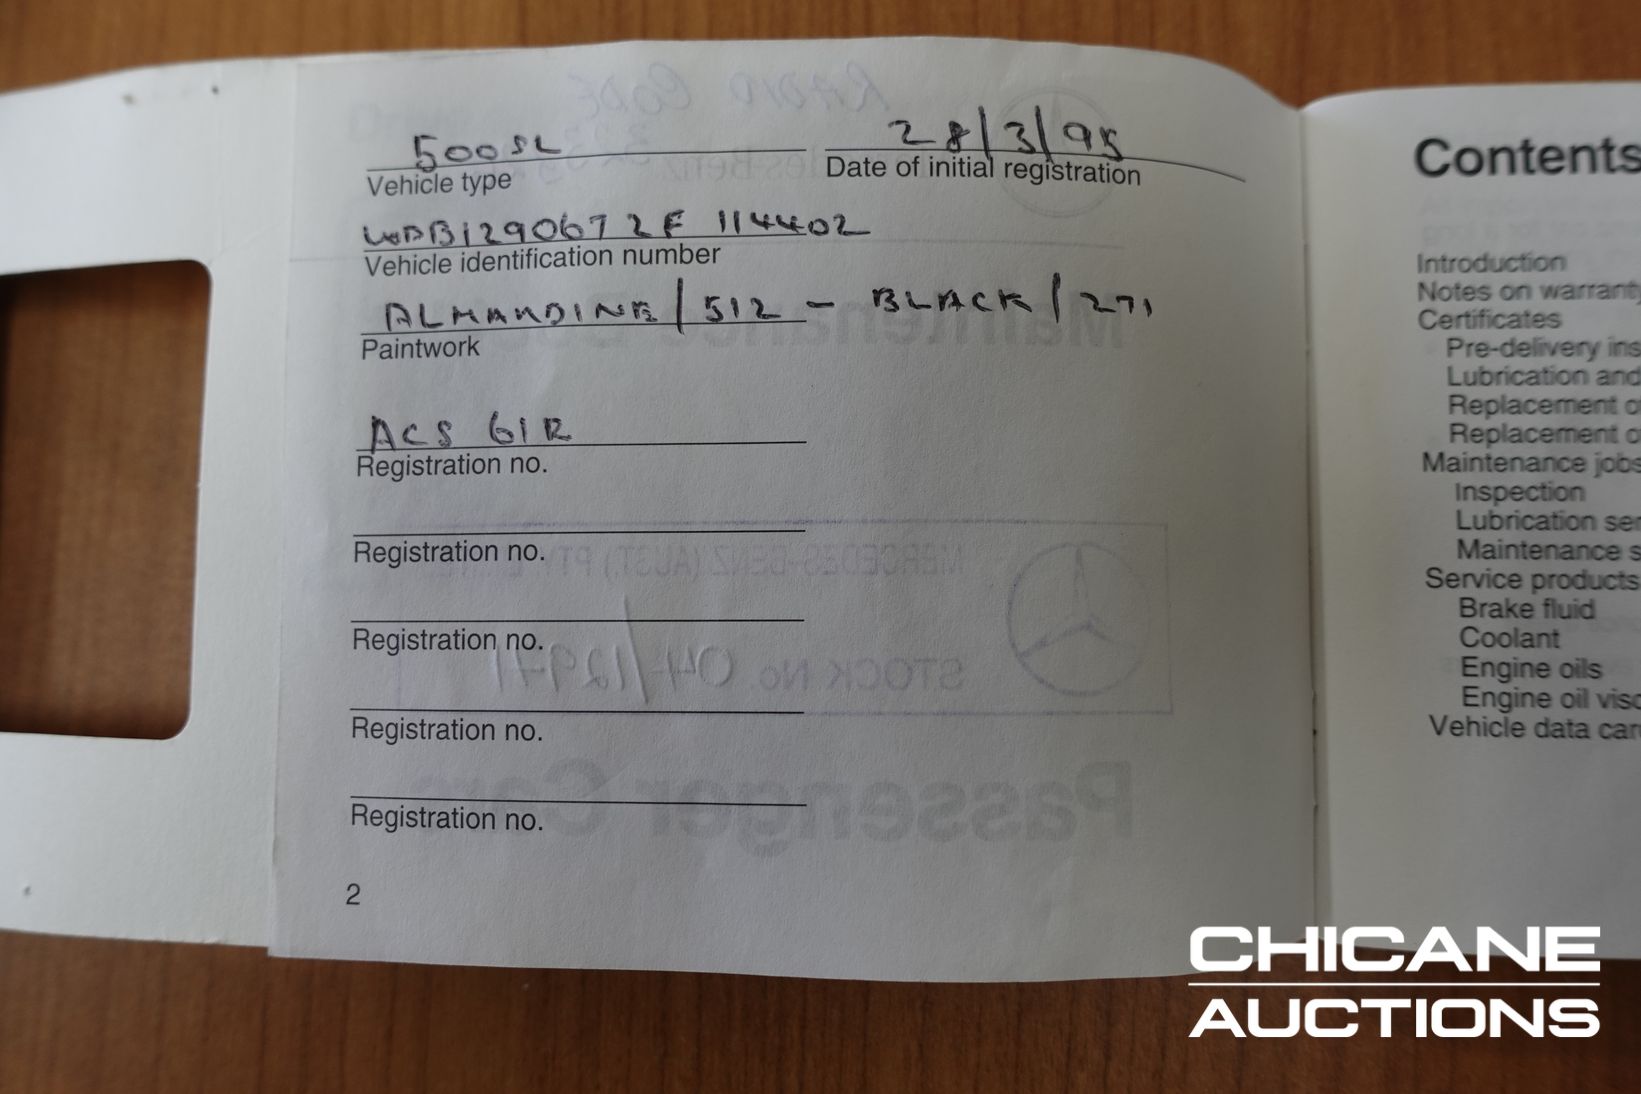 500SL 28/3/95
Vehicle type Date of initial registration
WDB129067 2F 114402
Vehicle identification number
ALMANDINE/512 - BLACK/271
Paintwork
ACS 61R
Registration no.
Registration no.
Registration no.
Registration no.
Registration no.
2
Contents
Introduction
Notes on warranty
Certificates
Pre-delivery ins
Lubrication and
Replacement o
Replacement o
Maintenance jobs
Inspection
Lubrication ser
Maintenance s
Service products
Brake fluid
Coolant
Engine oils
Engine oil visc
Vehicle data car
RADIO CODE
MERCEDES-BENZ (AUST.) PTY.
STOCK No. 04/12971
Passenger Cars
CHICANE
AUCTIONS